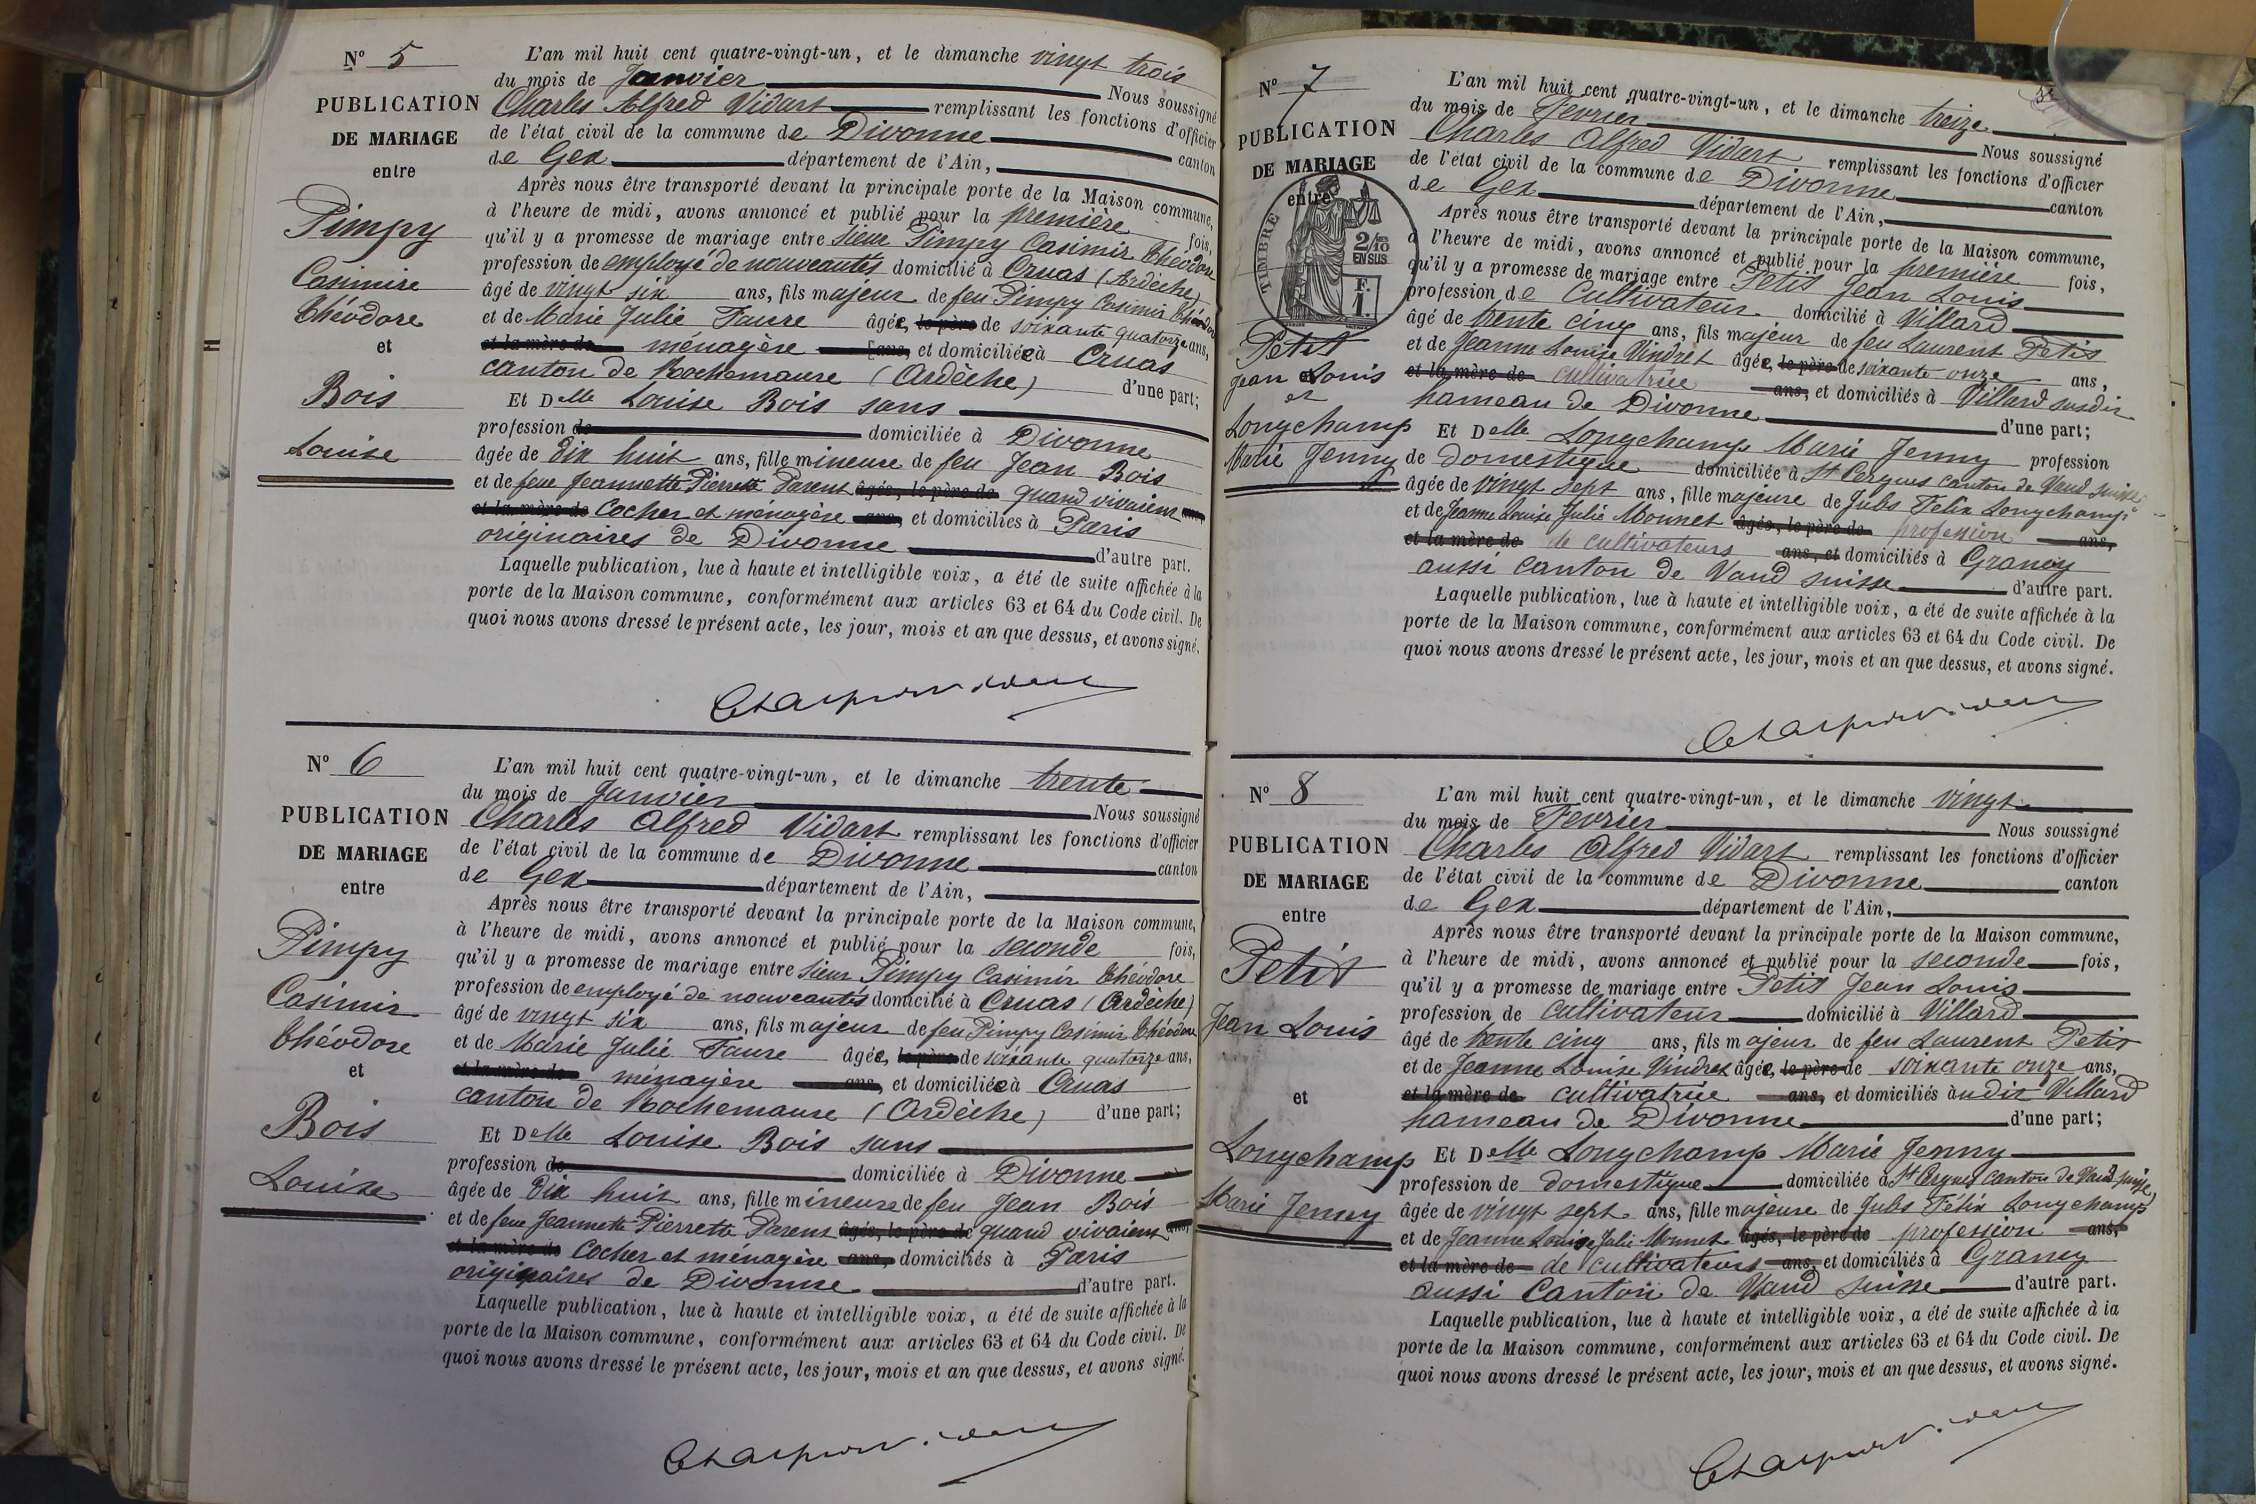 N° 5
PUBLICATION
DE MARIAGE
entre
Pimpy
Casimire
Théodore
et
Bois
Louise
L'an mil huit cent quatre-vingt-un, et le dimanche vingt trois
du mois de Janvier Nous soussigné
Charles Alfred Vidart remplissant les fonctions d'officier
de l'état civil de la commune de Divonne canton
de Gex département de l'Ain,
Après nous être transporté devant la principale porte de la Maison commune,
à l'heure de midi, avons annoncé et publié pour la première fois,
qu'il y a promesse de mariage entre sieur Pimpy Casimir Théodore
profession de employé de nouveautés domicilié à Cruas (Ardèche)
âgé de vingt six ans, fils majeur de feu Pimpy Casimir Théodore
et de Marie Julie Faure âgée, le père de soixante quatorze ans,
et la mère de ménagère ans, et domiciliée à Cruas
canton de Rochemaure (Ardèche) d'une part;
Et Delle Louise Bois sans
profession de domiciliée à Divonne
âgée de dix huit ans, fille mineure de feu Jean Bois
et de feue Jeannette Pierrette Parent âgés, le père de quand vivaient ans,
et la mère de Cocher et ménagère ans, et domiciliés à Paris
originaires de Divonne d'autre part.
Laquelle publication, lue à haute et intelligible voix, a été de suite affichée à la
porte de la Maison commune, conformément aux articles 63 et 64 du Code civil. De
quoi nous avons dressé le présent acte, les jour, mois et an que dessus, et avons signé.
N° 6
PUBLICATION
DE MARIAGE
entre
Pimpy
Casimir
Théodore
et
Bois
Louise
L'an mil huit cent quatre-vingt-un, et le dimanche trente
du mois de Janvier Nous soussigné
Charles Alfred Vidart remplissant les fonctions d'officier
de l'état civil de la commune de Divonne canton
de Gex département de l'Ain,
Après nous être transporté devant la principale porte de la Maison commune,
à l'heure de midi, avons annoncé et publié pour la seconde fois,
qu'il y a promesse de mariage entre sieur Pimpy Casimir Théodore
profession de employé de nouveautés domicilié à Cruas (Ardèche)
âgé de vingt six ans, fils majeur de feu Pimpy Casimir Théodore
et de Marie Julie Faure âgée, le père de soixante quatorze ans,
et la mère de ménagère ans, et domiciliée à Cruas
canton de Rochemaure (Ardèche) d'une part;
Et Delle Louise Bois sans
profession de domiciliée à Divonne
âgée de dix huit ans, fille mineure de feu Jean Bois
et de feue Jeannette Pierrette Parent âgés, le père de quand vivaient ans,
et la mère de Cocher et ménagère ans, domiciliés à Paris
originaires de Divonne d'autre part.
Laquelle publication, lue à haute et intelligible voix, a été de suite affichée à la
porte de la Maison commune, conformément aux articles 63 et 64 du Code civil. De
quoi nous avons dressé le présent acte, les jour, mois et an que dessus, et avons signé.
N° 7
PUBLICATION
DE MARIAGE
entre
TIMBRE
2/10
EN SUS
F.
1.
Petit
Jean Louis
et
Longchamp
Marie Jenny
L'an mil huit cent quatre-vingt-un, et le dimanche treize
du mois de Fevrier Nous soussigné
Charles Alfred Vidart remplissant les fonctions d'officier
de l'état civil de la commune de Divonne canton
de Gex département de l'Ain,
Après nous être transporté devant la principale porte de la Maison commune,
à l'heure de midi, avons annoncé et publié pour la première fois,
qu'il y a promesse de mariage entre Petit Jean Louis
profession de Cultivateur domicilié à Villard
âgé de trente cinq ans, fils majeur de feu Laurent Petit
et de Jeanne Louise Vindret âgée, le père de soixante onze ans,
et la mère de cultivatrice ans, et domiciliés à Villard susdit
hameau de Divonne d'une part;
Et Delle Longchamp Marie Jenny profession
de domestique domiciliée à St Cergues canton de Vaud suisse
âgée de vingt sept ans, fille majeure de Jules Félix Longchamp
et de Jeanne Louise Julie Monnet âgés, le père de profession ans,
et la mère de de cultivateurs ans, et domiciliés à Grancy
aussi canton de Vaud suisse d'autre part.
Laquelle publication, lue à haute et intelligible voix, a été de suite affichée à la
porte de la Maison commune, conformément aux articles 63 et 64 du Code civil. De
quoi nous avons dressé le présent acte, les jour, mois et an que dessus, et avons signé.
N° 8
PUBLICATION
DE MARIAGE
entre
Petit
Jean Louis
et
Longchamp
Marie Jenny
L'an mil huit cent quatre-vingt-un, et le dimanche vingt
du mois de Fevrier Nous soussigné
Charles Alfred Vidart remplissant les fonctions d'officier
de l'état civil de la commune de Divonne canton
de Gex département de l'Ain,
Après nous être transporté devant la principale porte de la Maison commune,
à l'heure de midi, avons annoncé et publié pour la seconde fois,
qu'il y a promesse de mariage entre Petit Jean Louis
profession de cultivateur domicilié à Villard
âgé de trente cinq ans, fils majeur de feu Laurent Petit
et de Jeanne Louise Vindret âgée, le père de soixante onze ans,
et la mère de cultivatrice ans, et domiciliés àu dit Villard
hameau de Divonne d'une part;
Et Delle Longchamp Marie Jenny
profession de domestique domiciliée à St Cergues canton de Vaud suisse
âgée de vingt sept ans, fille majeure de Jules Félix Longchamp
et de Jeanne Louise Julie Monnet âgés, le père de profession ans,
et la mère de de cultivateurs ans, et domiciliés à Grancy
aussi Canton de Vaud suisse d'autre part.
Laquelle publication, lue à haute et intelligible voix, a été de suite affichée à la
porte de la Maison commune, conformément aux articles 63 et 64 du Code civil. De
quoi nous avons dressé le présent acte, les jour, mois et an que dessus, et avons signé.